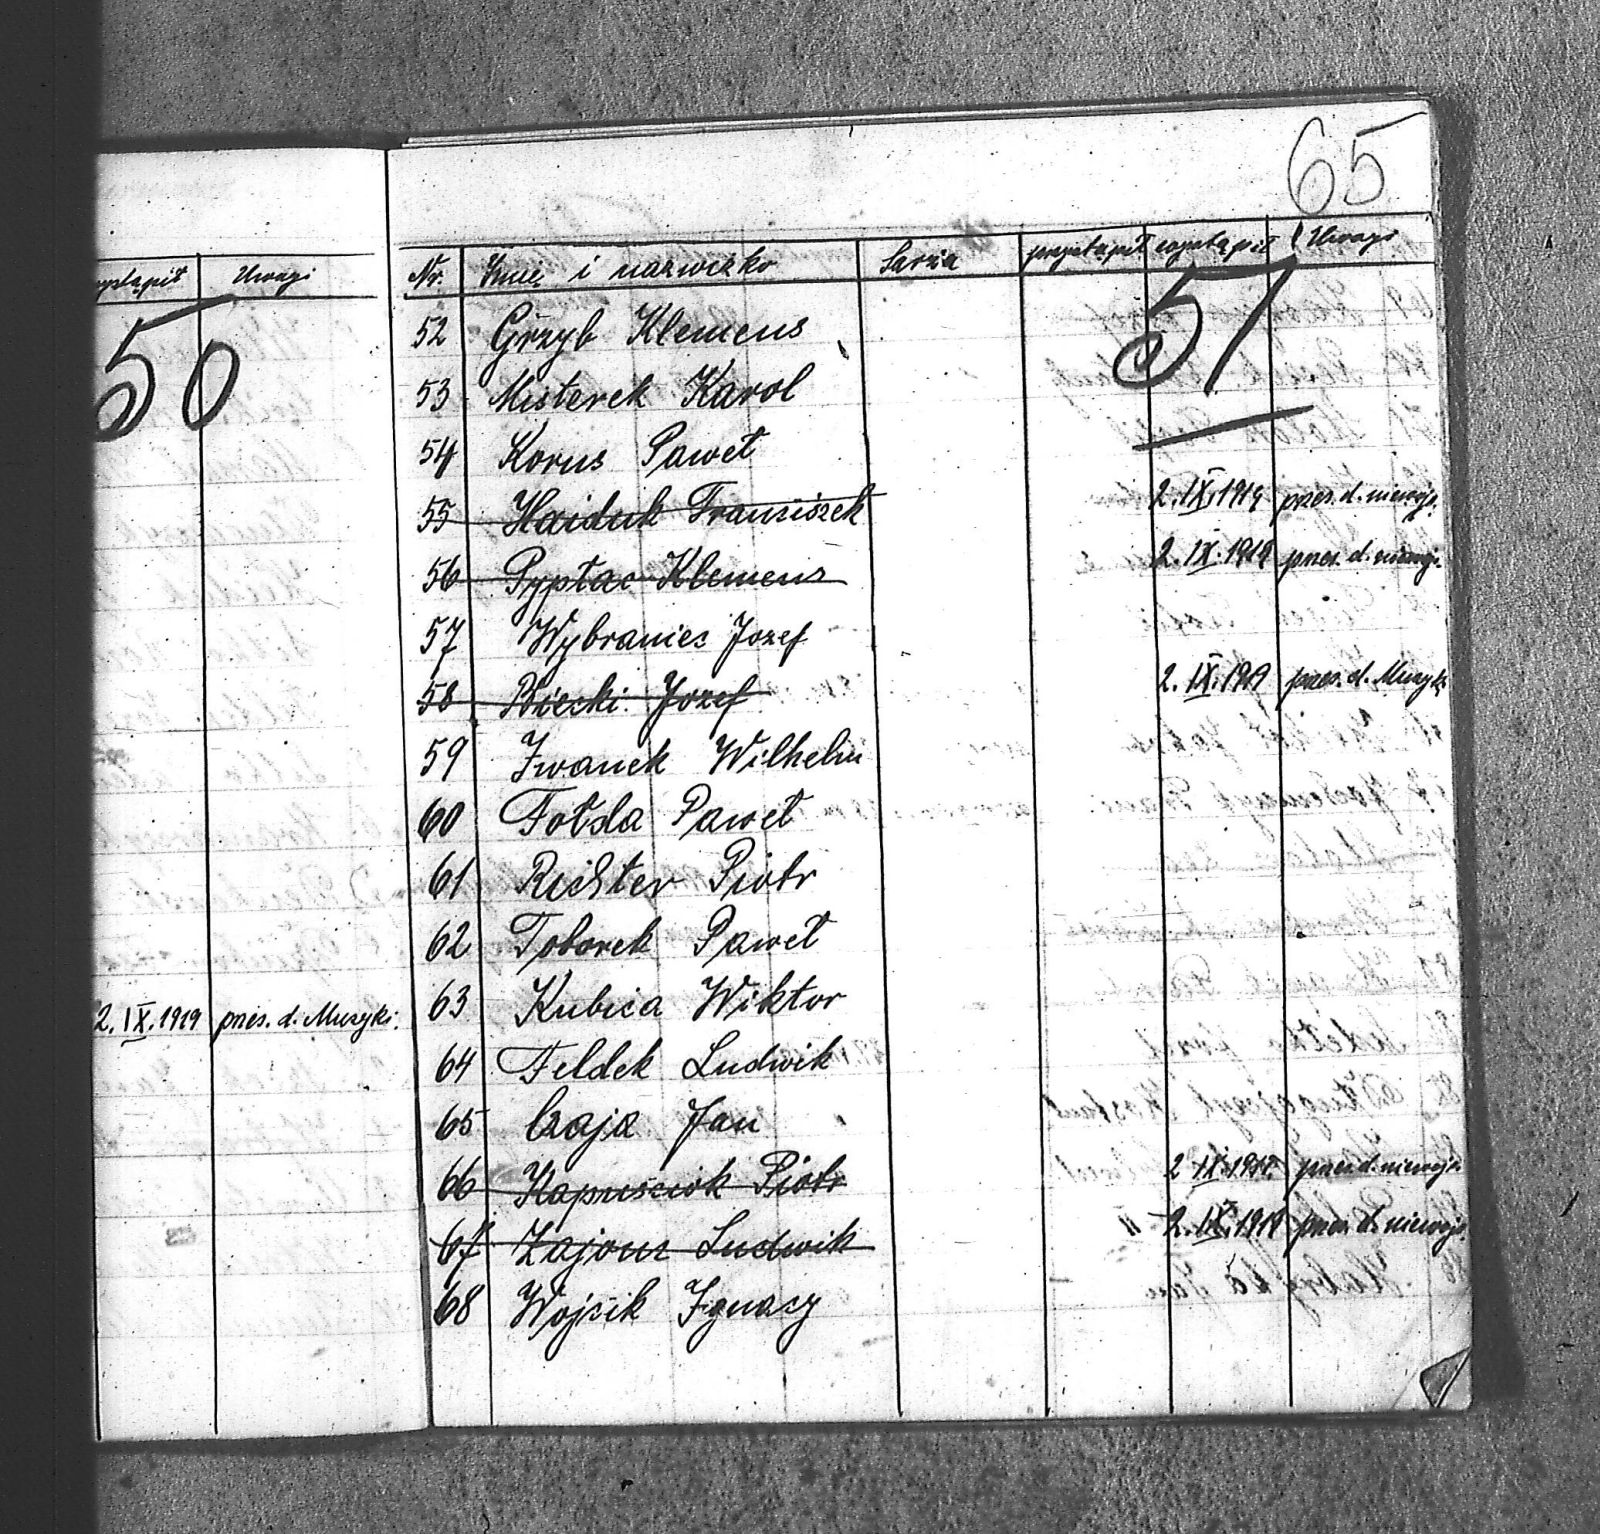 65
ystąpił Uwagi
50
2. IX. 1919 przes. d. Muzyki.
Nr. Imię i nazwizko Sarża przystąpił wystąpił Uwagi
51
52 Grzyb Klemens
53 Misterek Karol
54 Korus Paweł
55 Haiduk Franciszek 2. IX. 1919 przes. d. niewojs.
56 Pyptac Klemens 2. IX. 1919 przes. d. niewojs.
57 Wybraniec Jozef
58 Biecki Jozef 2. IX. 1919 przes. d. Muzyk
59 Iwanek Wilhelm
60 Fołda Paweł
61 Richter Piotr
62 Toborek Paweł
63 Kubica Wiktor
64 Feldek Ludwik
65 Czaja Jan
66 Kapuściok Piotr 2 IX. 1919 przes. d. niewojs.
67 Zajonz Ludwik 2. IX. 1919 przes. d. niewojs.
68 Wojcik Ignacy